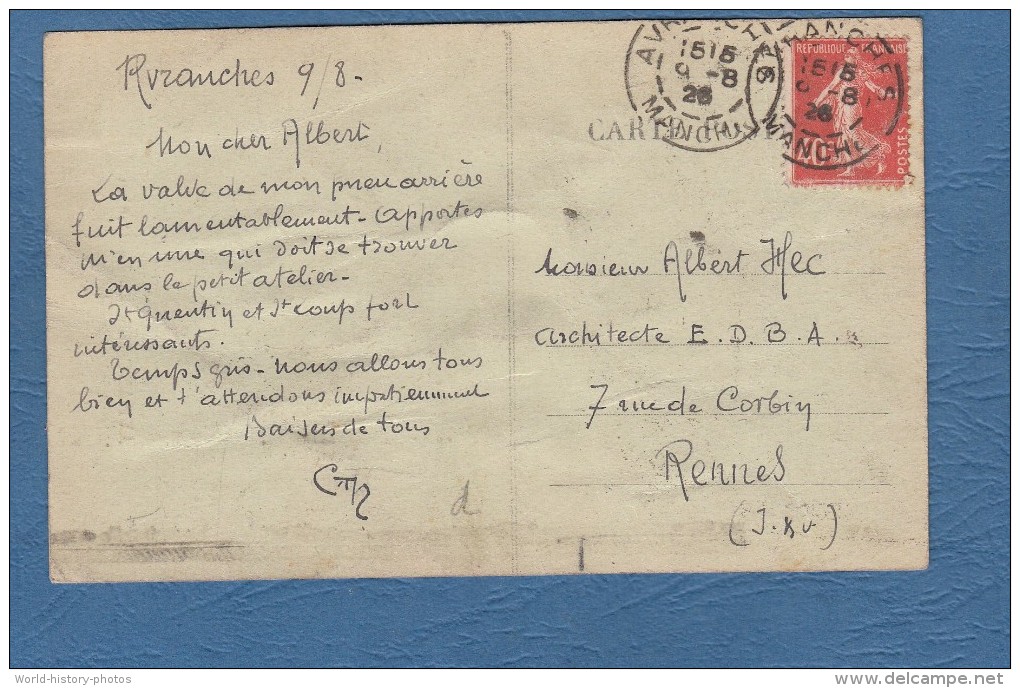 Avranches 9/8.
Mon cher Albert,
La valve de mon pneu arrière
fuit lamentablement - apportes
m'en une qui doit se trouver
dans le petit atelier -
St Quentin et St coup fort
intéressants.
Temps gris - nous allons tous
bien et t'attendons impatiemment
Baisers de tous
CARTE
AVRANCHES
1515
9 -8
26
MANCHE
AVRANCHES
1515
9 -8
26
MANCHE
REPUBLIQUE FRANÇAISE
POSTES
Monsieur Albert Hec
Architecte E. D. B. A.
7 rue de Corbin
Rennes
(I. &V)
d
World-history-photos
delcampe.net